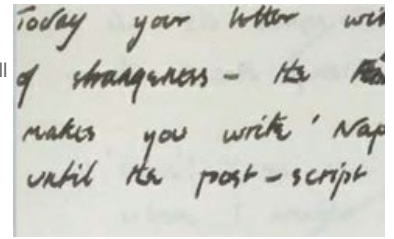 Today your letter wi
ll of strangeness - the
makes you write 'Nap
until the post-script